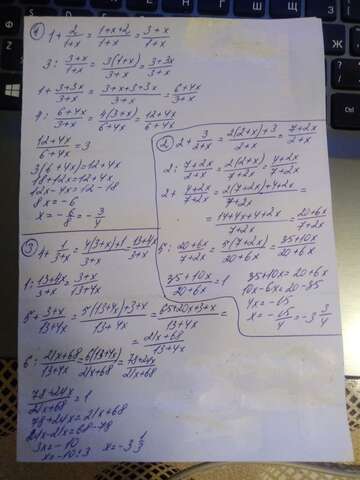 ①
1 + 2/(1+x) = (1+x+2)/(1+x) = (3+x)/(1+x)
3 : (3+x)/(1+x) = 3(1+x)/(3+x) = (3+3x)/(3+x)
1 + (3+3x)/(3+x) = (3+x+3+3x)/(3+x) = (6+4x)/(3+x)
4 : (6+4x)/(3+x) = 4(3+x)/(6+4x) = (12+4x)/(6+4x)
(12+4x)/(6+4x) = 3
3(6+4x) = 12+4x
18+12x = 12+4x
12x-4x = 12-18
8x = -6
x = -6/8 = -3/4
② 2 + 3/(2+x) = (2(2+x)+3)/(2+x) = (7+2x)/(2+x)
2 : (7+2x)/(2+x) = 2(2+x)/(7+2x) = (4+2x)/(7+2x)
2 + (4+2x)/(7+2x) = (2(7+2x)+4+2x)/(7+2x) =
= (14+4x+4+2x)/(7+2x) = (20+6x)/(7+2x)
5 : (20+6x)/(7+2x) = 5(7+2x)/(20+6x) = (35+10x)/(20+6x)
(35+10x)/(20+6x) = 1
35+10x = 20+6x
10x-6x = 20-35
4x = -15
x = -15/4 = -3 3/4
③ 4 + 1/(3+x) = (4(3+x)+1)/(3+x) = (13+4x)/(3+x)
1 : (13+4x)/(3+x) = (3+x)/(13+4x)
5 + (3+x)/(13+4x) = (5(13+4x)+3+x)/(13+4x) = (65+20x+3+x)/(13+4x) =
= (21x+68)/(13+4x)
6 : (21x+68)/(13+4x) = 6(13+4x)/(21x+68) = (78+24x)/(21x+68)
(78+24x)/(21x+68) = 1
78+24x = 21x+68
24x-21x = 68-78
3x = -10
x = -10:3 x = -3 1/3